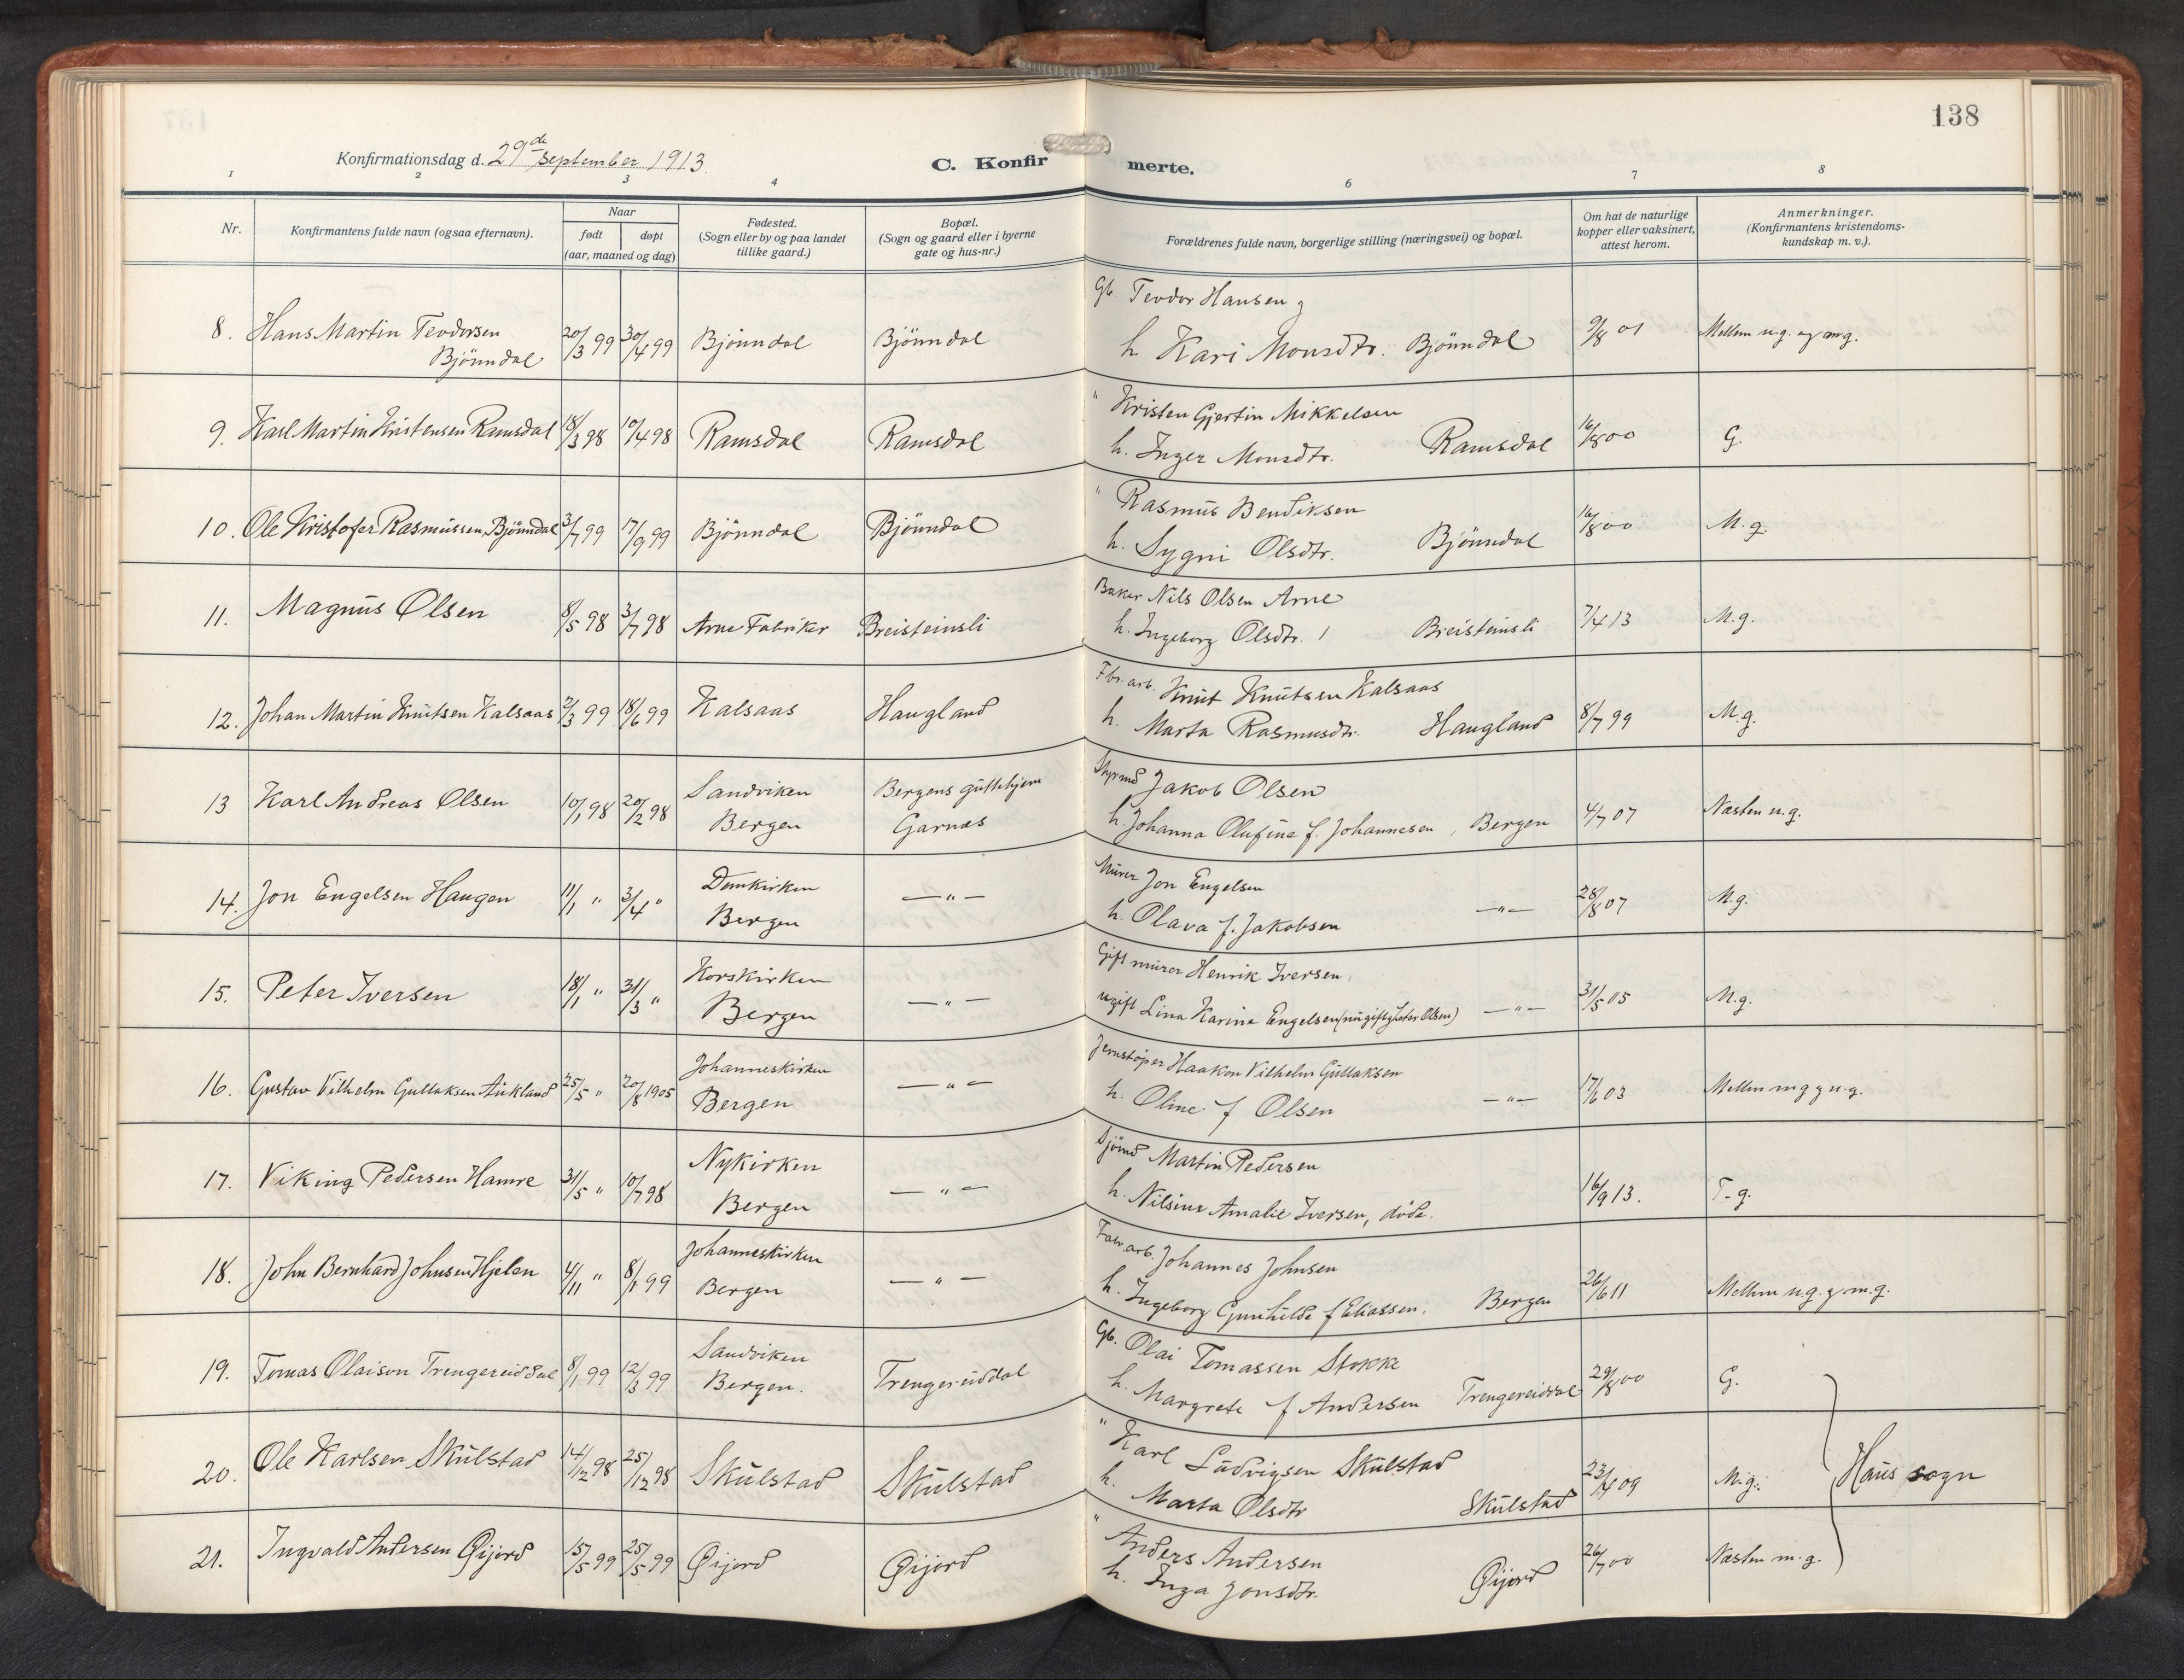 138
Konfirmationsdag d. 29de september 1913.
C. Konfirmerte.
1 2 3 4 6 7 8
Nr. Konfirmantens fulde navn (ogsaa efternavn). Naar født døpt (aar, maaned og dag) Fødested. (Sogn eller by og paa landet tillike gaard.) Bopæl. (Sogn og gaard eller i byerne gate og hus-nr.) Forældrenes fulde navn, borgerlige stilling (næringsvei) og bopæl. Om hat de naturlige kopper eller vaksinert, attest herom. Anmerkninger. (Konfirmantens kristendoms-kundskap m. v.).
8. Hans Martin Teodorsen Bjönndal 20/3 99 30/4 99 Bjönndal Bjönndal Gb. Teodor Hansen
h. Kari Monsdtr. Bjönndal 9/8 01 Mellem u.g. og mg.
9. Karl Martin Kristensen Ramsdal 18/3 98 10/4 98 Ramsdal Ramsdal " Kristen Gjertin Mikkelsen
h. Inger Monsdtr. Ramsdal 16/8 00 G.
10. Ole Kristofer Rasmussen Bjönndal 3/7 99 17/9 99 Bjönndal Bjönndal " Rasmus Bendiksen
h. Sygni Olsdtr. Bjönndal 16/8 00 M.g.
11. Magnus Olsen 8/5 98 3/7 98 Arne Fabriker Breisteinsli Baker Nils Olsen Arne
h. Ingeborg Olsdtr. Breisteinsli 7/4 13 M.g.
12. Johan Martin Knutsen Kalsaas 2/3 99 18/6 99 Kalsaas Haugland Fbr. arb. Knut Knutsen Kalsaas
h. Marta Rasmusdtr. Haugland 8/7 99 M.g.
13 Karl Andreas Olsen 10/1 98 20/2 98 Sandviken Bergen Bergens guttehjem Garnæs Styrmd Jakob Olsen
h. Johanna Olufine f. Johannesen, Bergen 4/7 07 Næsten u.g.
14. Jon Engelsen Haugen 11/1 " 3/4 " Domkirken Bergen —"— Murer Jon Engelsen
h. Olava f. Jakobsen —"— 28/8 07 M.g.
15. Peter Iversen 18/1 " 31/3 " Korskirken Bergen —"— Gift murer Henrik Iversen,
ugift Lina Karina Engelsen (nu gift Olsen) —"— 31/5 05 M.g.
16. Gustav Vilhelm Gullaksen Aukland 25/5 " 20/8 1905 Johanneskirken Bergen —"— Jernstøper Haakon Vilhelm Gullaksen
h. Oline f Olsen —"— 17/6 03 Mellem mg g u.g.
17. Viking Pedersen Hamre 31/5 " 10/7 98 Nykirken Bergen —"— Sjömd Martin Pedersen
h. Nilsine Amalie Iversen, döde. 16/9 13. T-g.
18. John Bernhard Johnsen Hjelen 4/11 " 8/1 99 Johanneskirken Bergen —"— Fabr. arb. Johannes Johnsen
h. Ingeborg Gunhilde f Eliassen, Bergen 26/6 11 Mellem u.g. g m.g.
19. Tomas Olaison Trengereiddal 8/1 99 12/3 99 Sandviken Bergen. Trengereiddal Gb. Olai Tomassen Stokke
h. Margrete f Andersen Trengereiddal 29/8 00 G.
20. Ole Karlsen Skulstad 14/12 98 25/12 98 Skulstad Skulstad " Karl Ludvigsen Skulstad
h. Marta Olsdtr Skulstad 23/4 09 M.g. Haus sogn
21. Ingvald Andersen Øijord 15/5 99 25/5 99 Øijord Øijord " Anders Andersen
h. Inga Jonsdtr. Øijord 26/7 00 Næsten m.g.